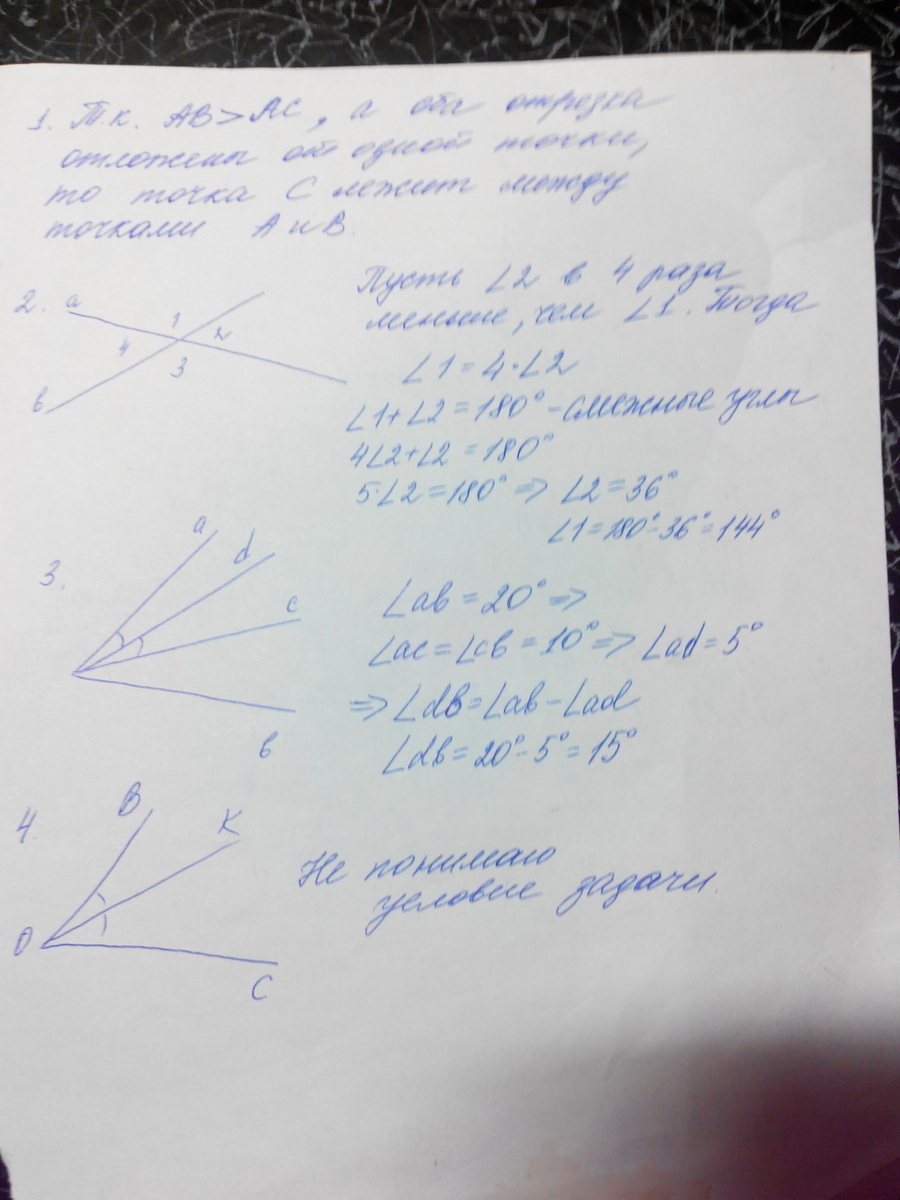 1. Т.к. AB > AC, а оба отрезка
отложены от одной точки,
то точка C лежит между
точками A и B.
2. a 1 2 4 3 b
Пусть ∠2 в 4 раза
меньше, чем ∠1. Тогда
∠1 = 4·∠2
∠1+∠2 = 180° - смежные углы
4∠2+∠2 = 180°
5·∠2 = 180° ⇒ ∠2 = 36°
∠1 = 180° - 36° = 144°
3. a d c b
∠ab = 20° ⇒
∠ac = ∠cb = 10° ⇒ ∠ad = 5°
⇒ ∠db = ∠ab - ∠ad
∠db = 20° - 5° = 15°
4. B K O C
Не понимаю
условие задачи.